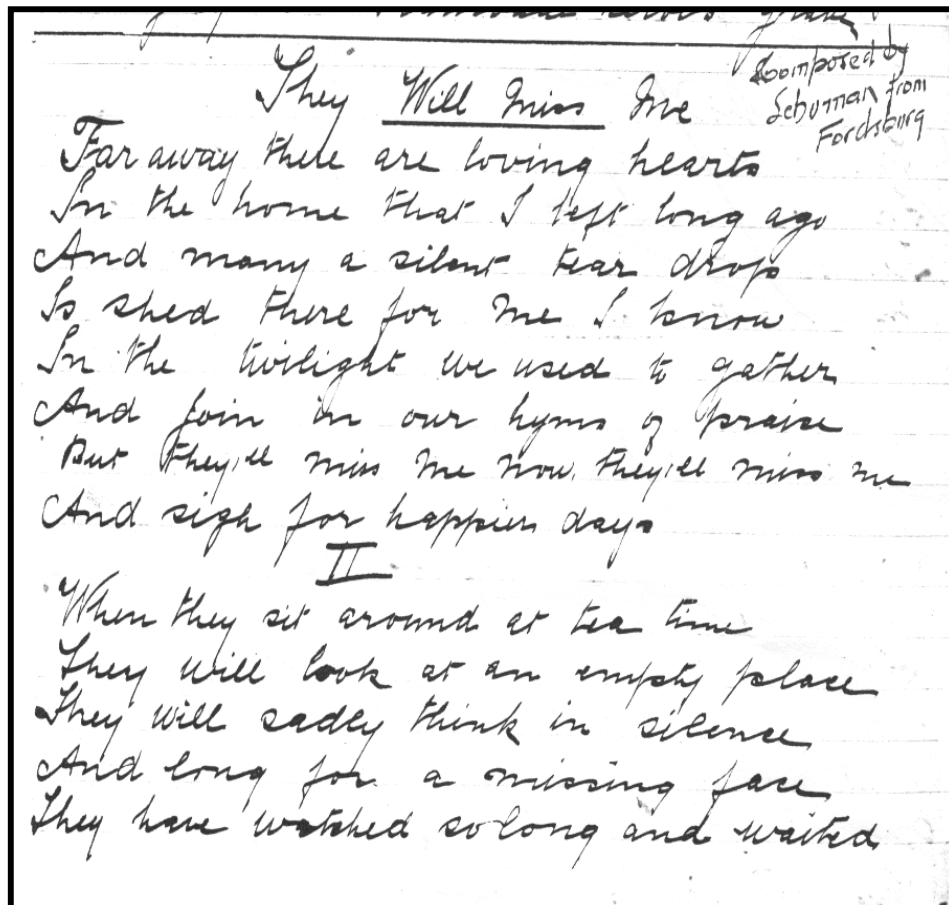 They Will Miss Me
Composed by
Schuman from
Fordsburg
Far away there are loving hearts
In the home that I left long ago
And many a silent tear drops
Is shed there for me I know
In the twilight we used to gather
And join in our hyms of praise
But they'll miss me now, they'll miss me
And sigh for happier days
II
When they sit around at tea time
They will look at an empty place
They will sadly think in silence
And long for a missing face
They have watched so long and waited